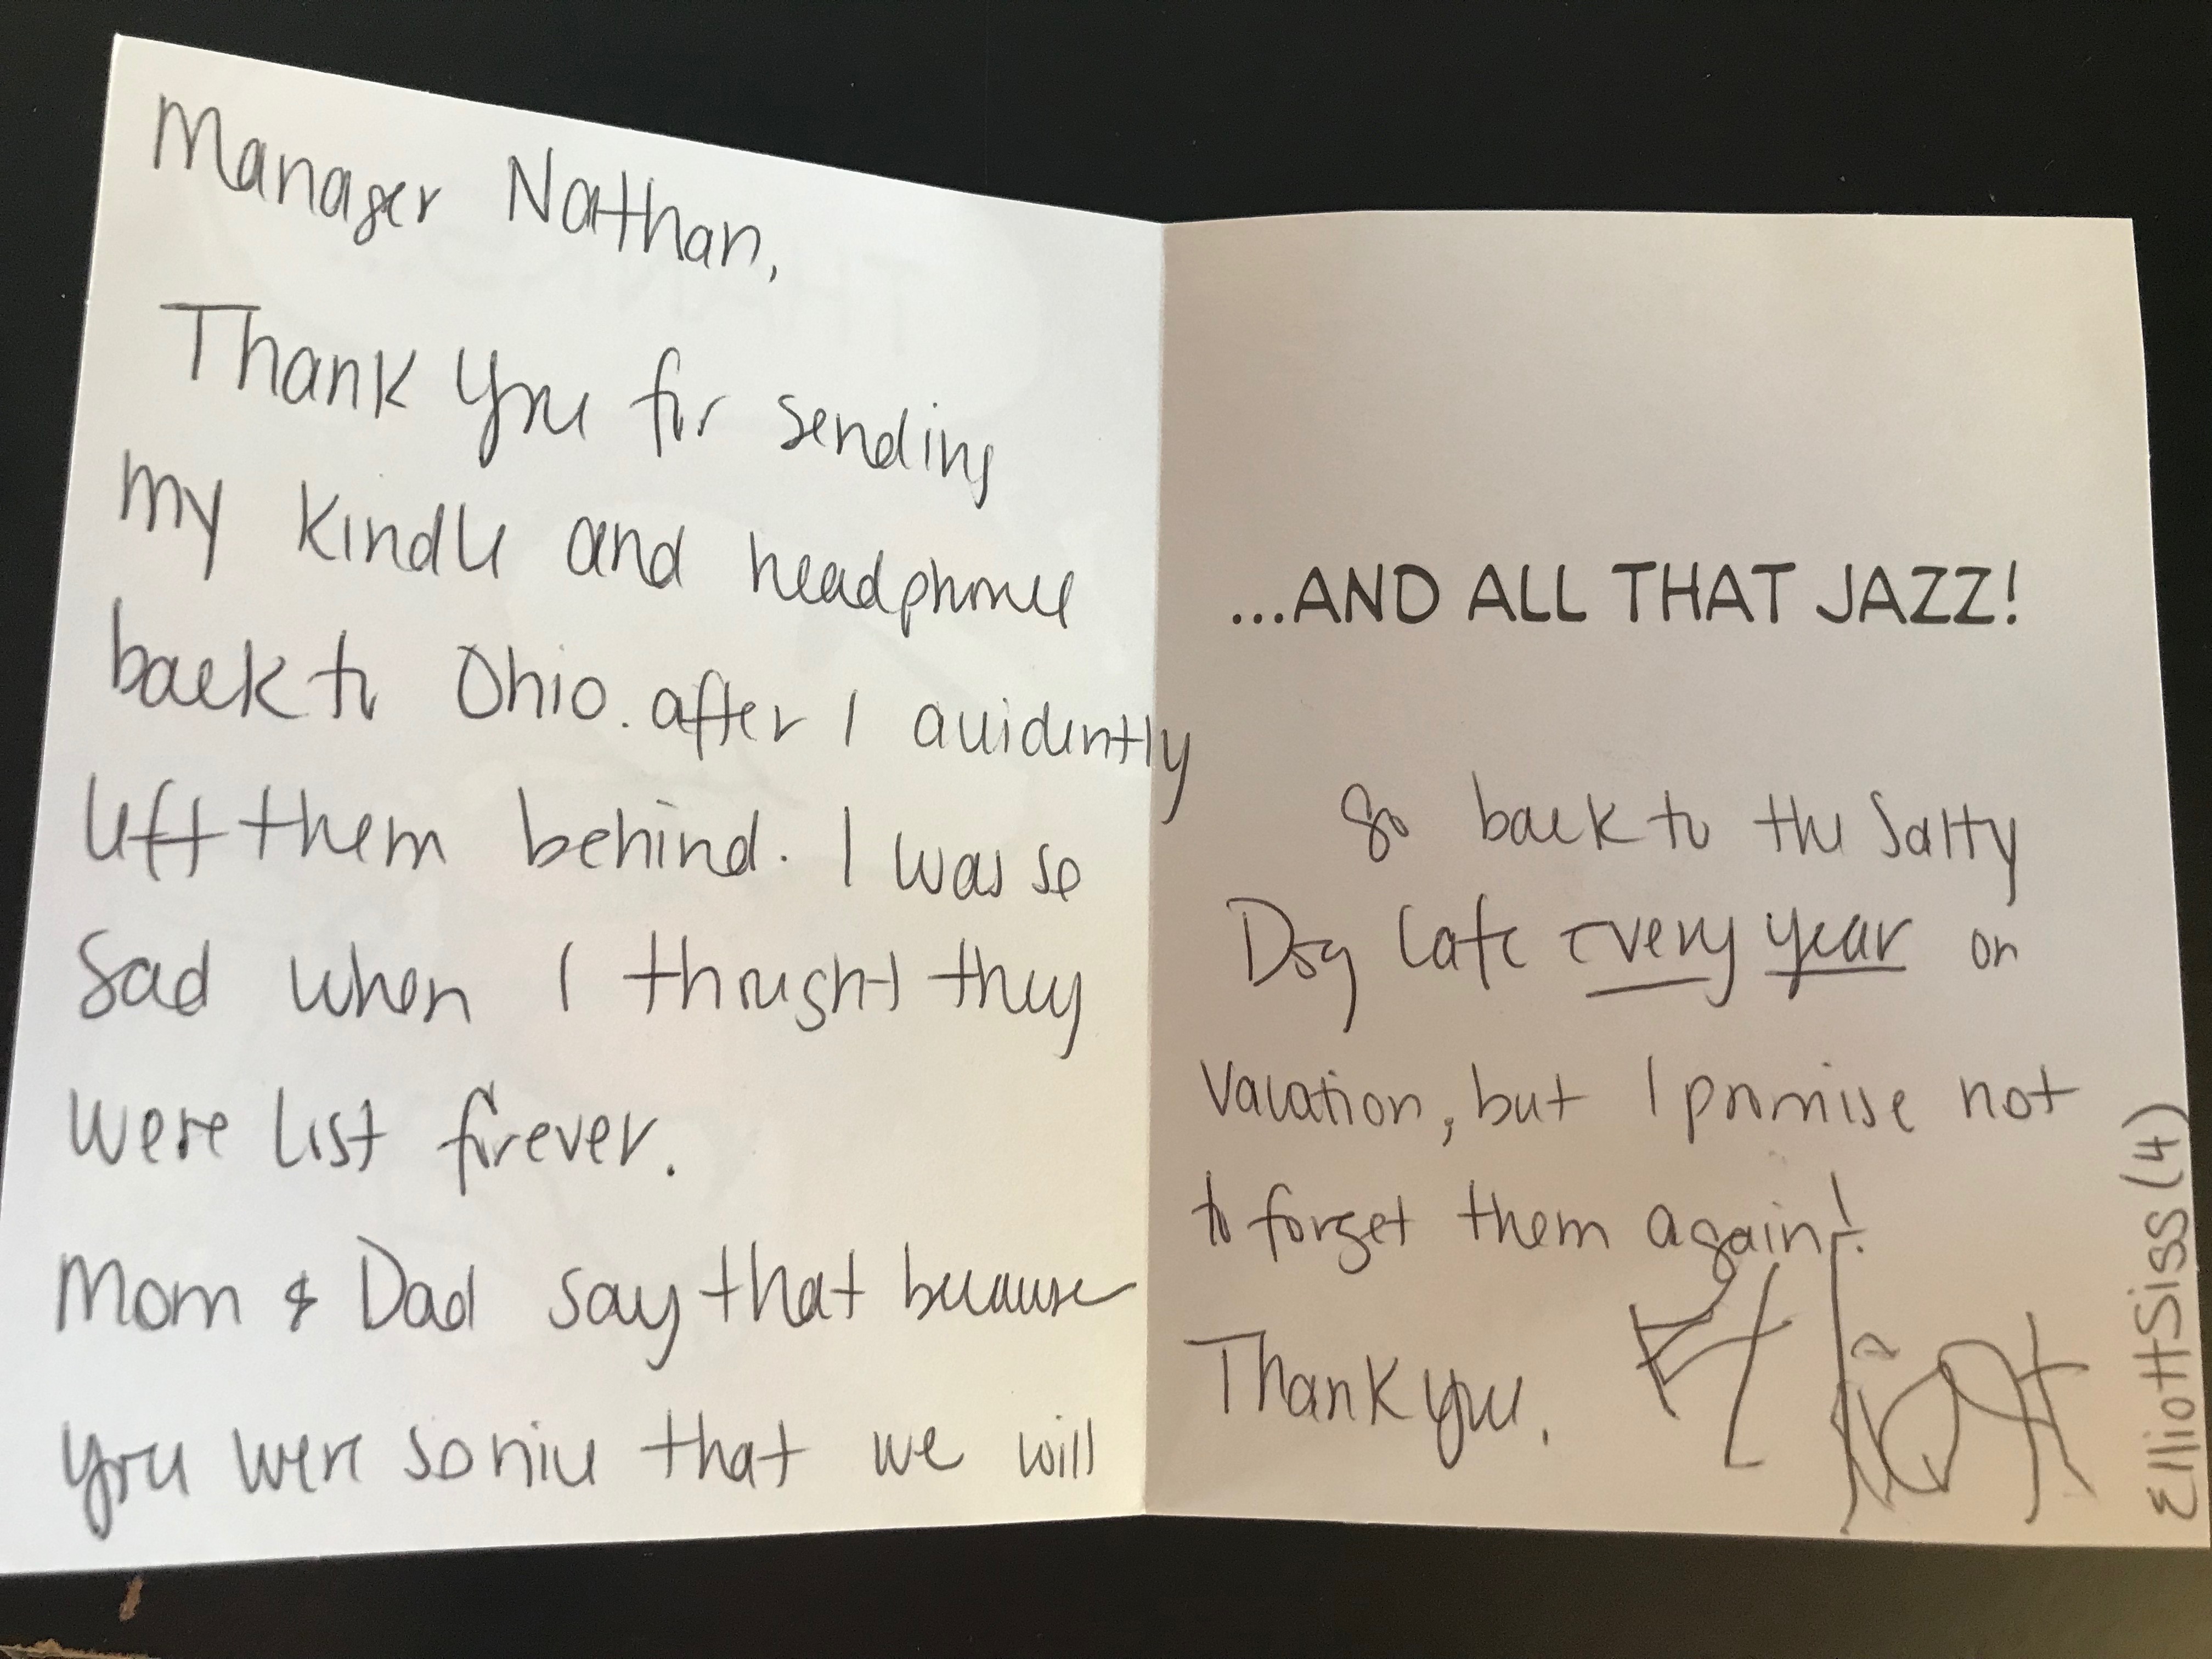 Manager Nathan,
Thank you for sending
my kindle and headphones
back to Ohio. after I accidently
left them behind. I was so
Sad when I thought they
were lost forever.
Mom & Dad say that because
you were so nice that we will
...AND ALL THAT JAZZ!
go back to the Salty
Dog Cafe every year on
vacation, but I promise not
to forget them again!
Thank you.
Elliott
Elliott Siss (4)